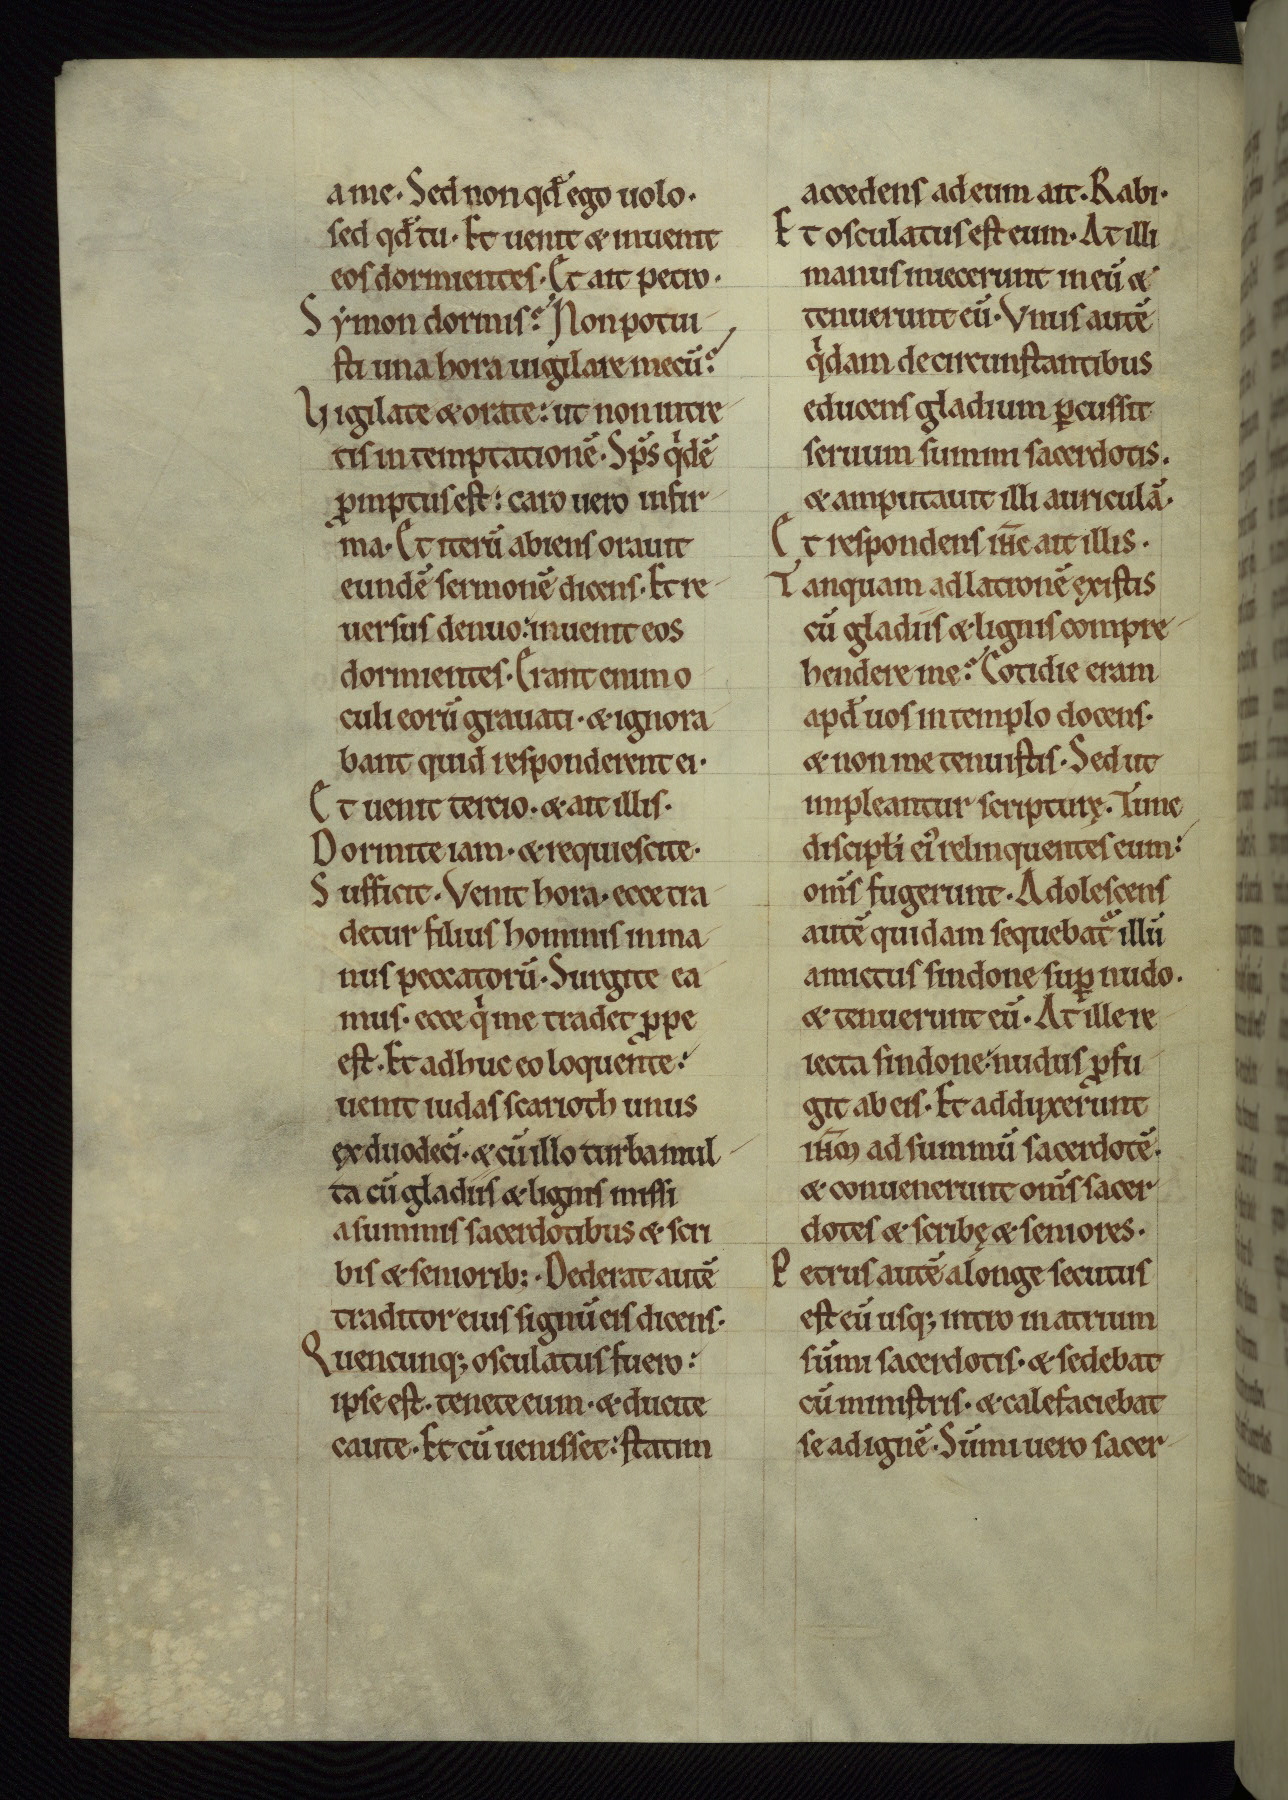 a me· Sed non qđ ego uolo·
sed qđ tu· Et uenit & inuenit
eos dormientes· Et ait petro·
Symon dormis? Non potui
sti una hora uigilare mecū?
Vigilate & orate: ut non intre
tis in temptationē· Sp̄s qͥdē
ꝓmptus est: caro uero infir
ma· Et iterū abiens orauit
eundē sermonē dicens· Et re
uersus denuo: inuenit eos
dormientes· Erant enim o
culi eorū grauati· & ignora
bant quid responderent ei·
Et uenit tercio· & ait illis·
Dormite iam· & requiescite·
Sufficit· Venit hora· ecce tra
detur filius hominis in ma
nus peccatorū· Surgite ea
mus· ecce qͥ me tradet ꝓpe
est· Et adhuc eo loquente:
uenit iudas scarioth unus
ex duodecī· & cū illo turba mul
ta cū gladiis & lignis missi
a summis sacerdotibus & scri
bis & seniorib:· Dederat autē
traditor eius signū eis dicens·
Quencunq; osculatus fuero:
ipse est· tenete eum· & ducite
caute· Et cū uenisset: statim
accedens ad eum ait· Rabi·
Et osculatus est eum· At illi
manus iniecerunt in eū &
tenuerunt eū· Vnus autē
qͥdam de circunstantibus
educens gladium ꝑcussit
seruum summi sacerdotis·
& amputauit illi auriculā·
Et respondens ih̄c ait illis·
Tanquam ad latronē existis
cū gladiis & lignis compre
hendere me? Cotidie eram
apđ uos in templo docens·
& non me tenuistis· Sed ut
impleantur scripturę· Tunc
discipłi eiꝰ relinquentes eum:
om̄s fugerunt· Adolescens
autē quidam sequebat᷑ illū
amictus sindone suꝑ nudo·
& tenuerunt eū· At ille re
iecta sindone: nudus ꝓfu
git ab eis· Et adduxerunt
ih̄m ad summū sacerdotē·
& conuenerunt om̄s sacer
dotes & scribę & seniores·
Petrus autē a longe secutus
est eū usq; intro in atrium
sūmi sacerdotis· & sedebat
cū ministris· & calefaciebat
se ad ignē· Sūmi uero sacer